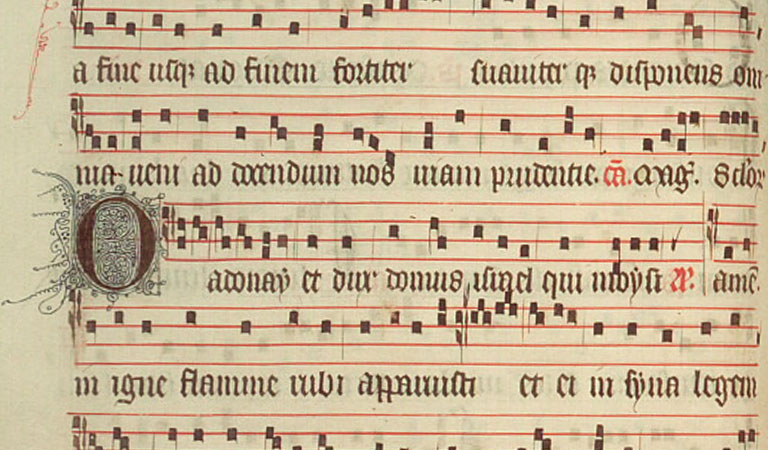 a fine usq; ad finem fortiter suauiter q; disponens om-
nia ueni ad docendum nos uiam prudentie. cā. Mag̃. Sc̄lor
O adonay et dux domus israel qui moysi R. amē.
in igne flamme rubi apparuisti et ei in syna legem